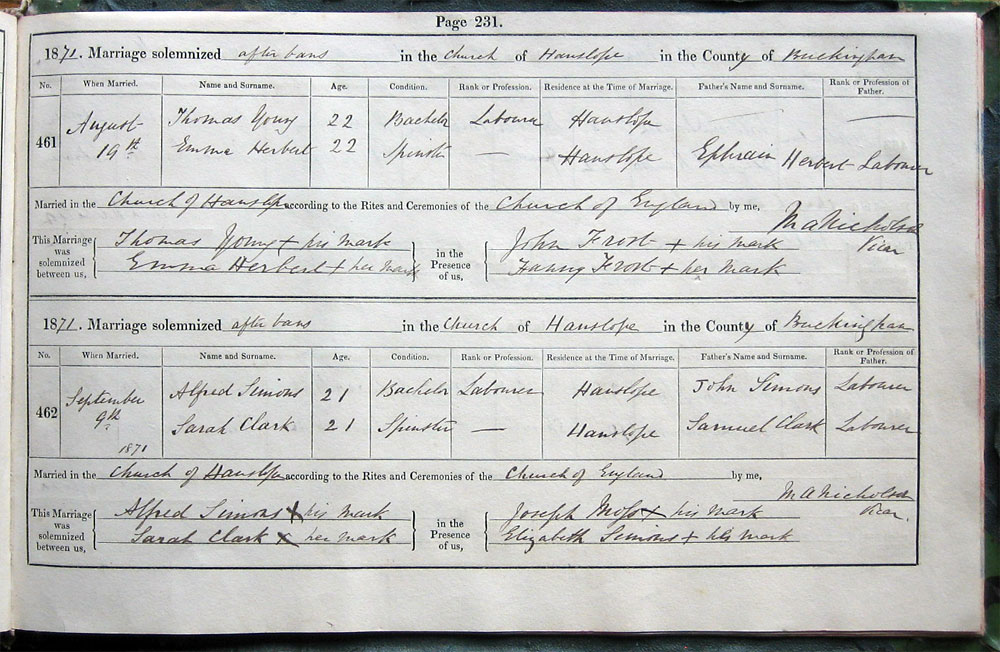 Page 231.
1871. Marriage solemnized after bans in the Church of Hanslope in the County of Buckingham
No. When Married. Name and Surname. Age. Condition. Rank or Profession. Residence at the Time of Marriage. Father's Name and Surname. Rank or Profession of Father.
461 August 19th Thomas Young 22 Bachelor Labourer Hanslope — —
Emma Herbert 22 Spinster — Hanslope Ephraim Herbert Labourer
Married in the Church of Hanslope according to the Rites and Ceremonies of the Church of England by me,
M A Nicholson
Vicar
This Marriage was solemnized between us, Thomas Young + his mark in the Presence of us, John Frost + his mark
Emma Herbert + her mark Fanny Frost + her mark
1871. Marriage solemnized after bans in the Church of Hanslope in the County of Buckingham
No. When Married. Name and Surname. Age. Condition. Rank or Profession. Residence at the Time of Marriage. Father's Name and Surname. Rank or Profession of Father.
462 September 9th 1871 Alfred Simons 21 Bachelor Labourer Hanslope John Simons Labourer
Sarah Clark 21 Spinster — Hanslope Samuel Clark Labourer
Married in the Church of Hanslope according to the Rites and Ceremonies of the Church of England by me,
M A Nicholson
Vicar.
This Marriage was solemnized between us, Alfred Simons X his mark in the Presence of us, Joseph + his mark
Sarah Clark X her mark Elizabeth Simons + mark